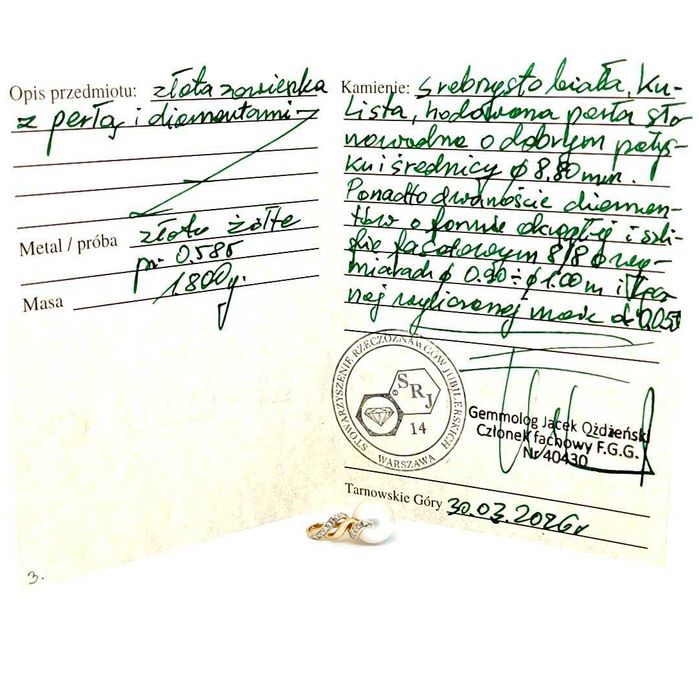 Opis przedmiotu: złota zawieszka
z perłą i diamentami
Metal / próba złoto żółte
pr. 0.585
Masa 1.800g.
Kamienie: srebrzysto biała, ku-
lista, hodowana perła sło-
nowodna o dobrym połys-
ku i średnicy φ 8,80 mm.
Ponadto dwanaście diamen-
tów o formie okrągłej i szli-
fie fasetowym 8/8 o wy-
miarach φ 0.90 ÷ φ 1.00 m i łącz-
nej wyliczonej masie
STOWARZYSZENIE RZECZOZNAWCÓW JUBILERSKICH
SRJ
14
WARSZAWA
Gemmolog Jacek Ożdżeński
Członek fachowy F.G.G.
Nr 40430
Tarnowskie Góry 30.03.2026r
3.